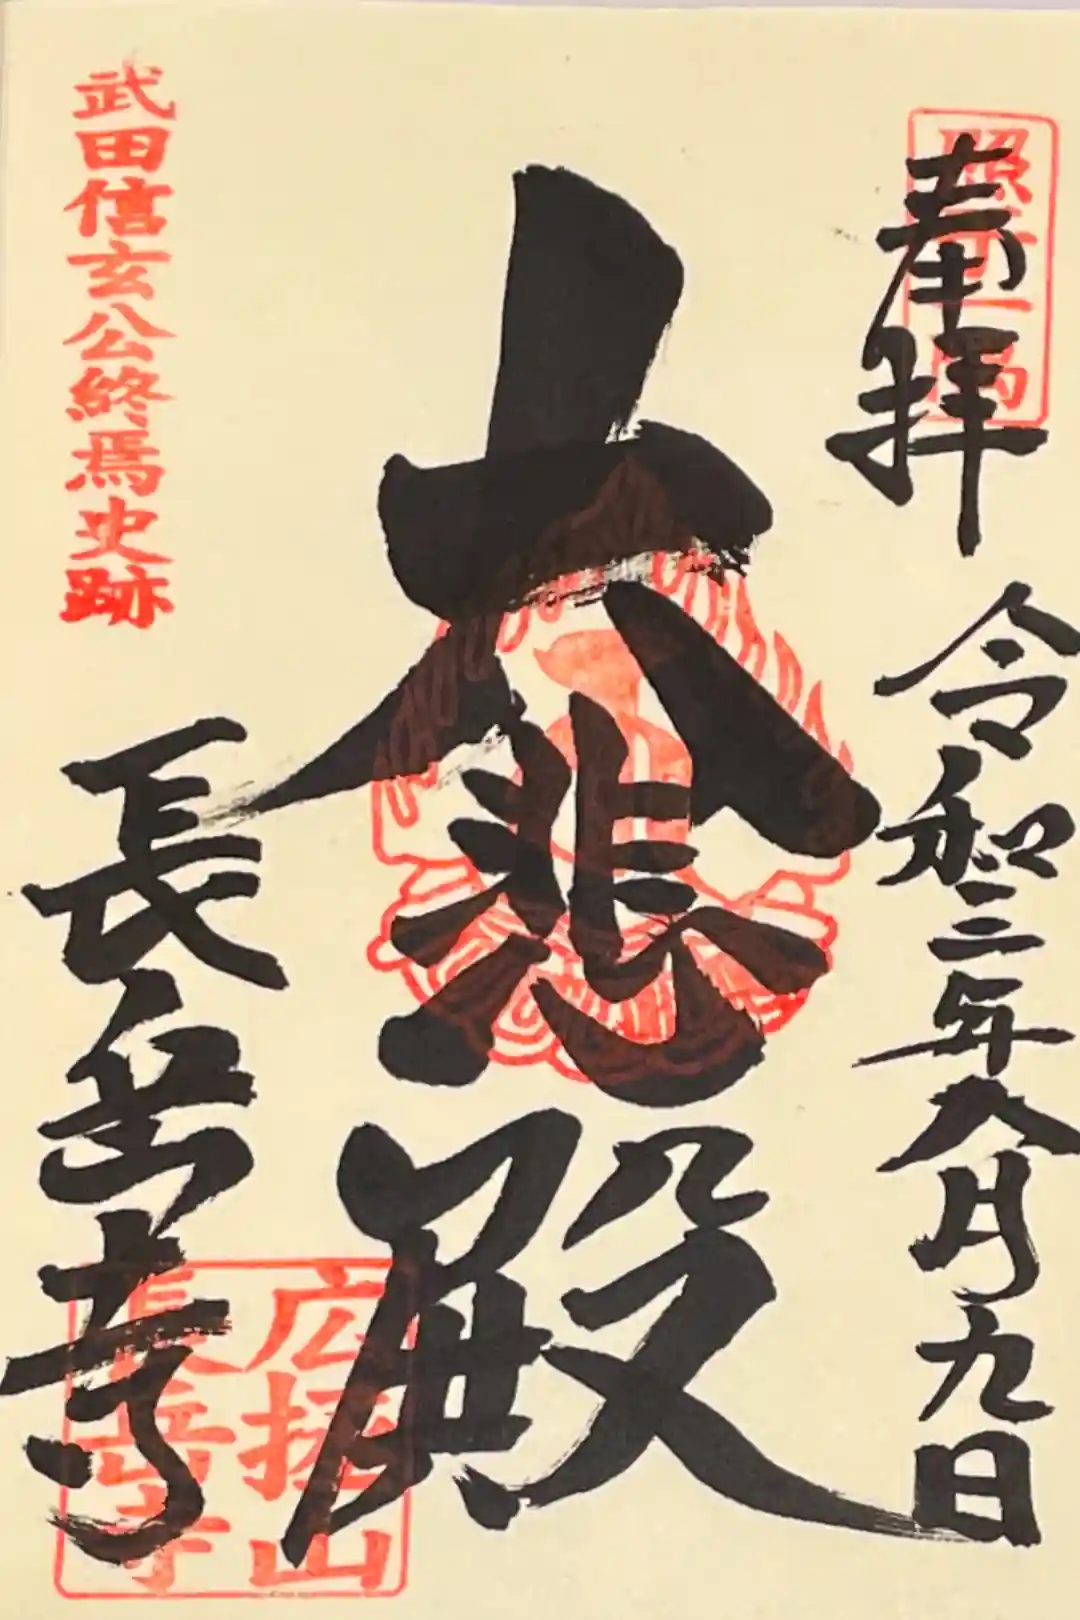 奉拝
令和三年八月九日
大悲殿
長岳寺
武田信玄公終焉史跡
照于一隅
広拯山
長岳寺